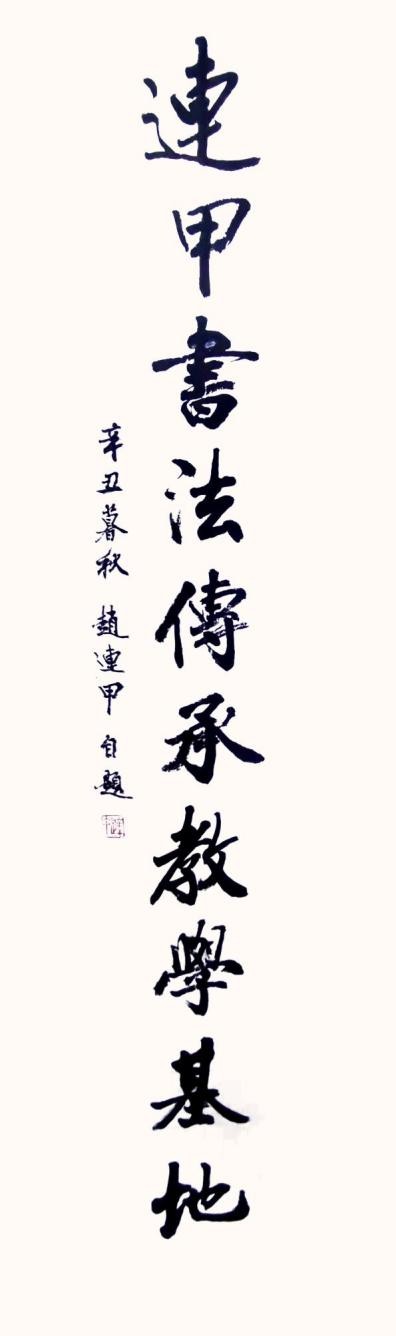 連甲書法傳承教學基地
辛丑暮秋 趙連甲自題